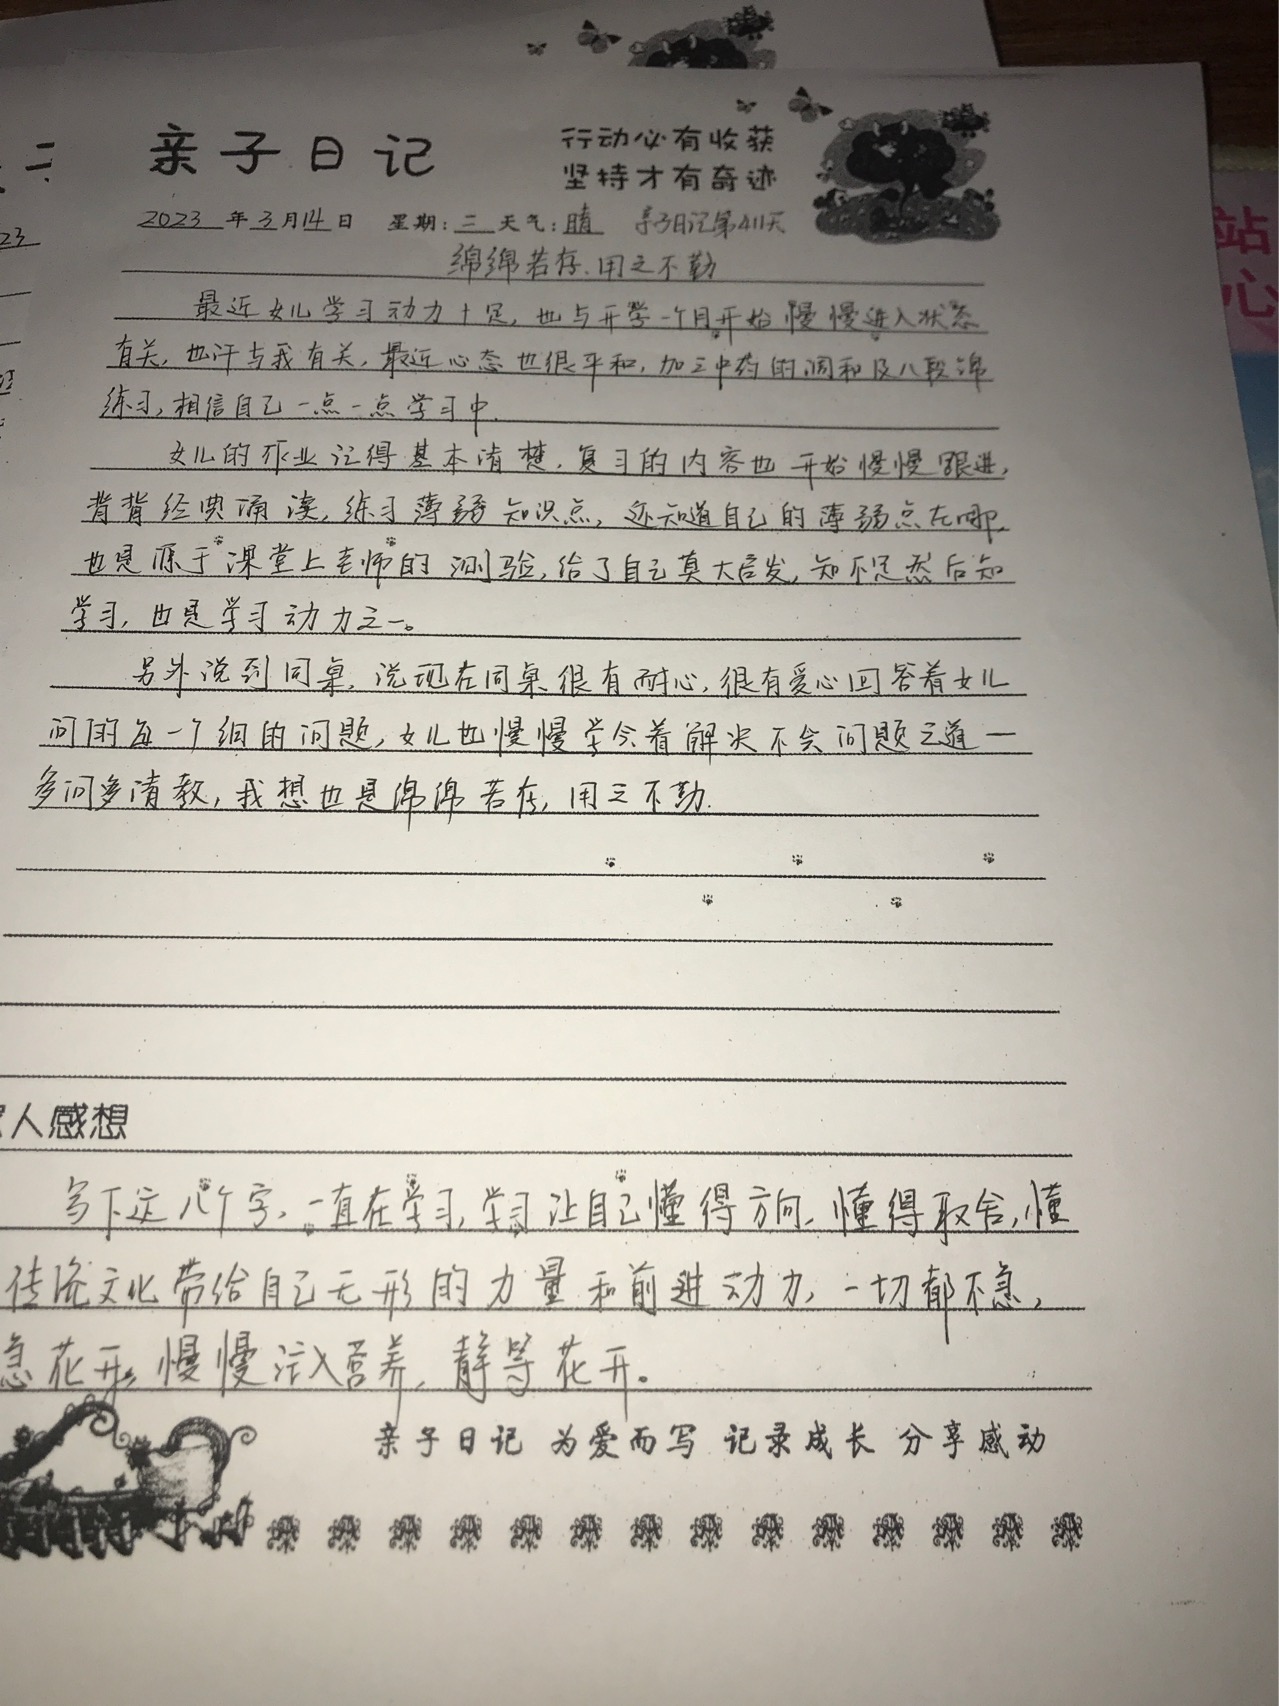 亲子日记
行动必有收获
坚持才有奇迹
2023年3月14日 星期:二 天气:晴 亲子日记第411天
绵绵若存,用之不勤
最近女儿学习动力十足,也与开学一个月开始慢慢进入状态
有关,也许与我有关,最近心态也很平和,加之中药的调和及八段锦
练习,相信自己一点一点学习中.
女儿的作业记得基本清楚,复习的内容也开始慢慢跟进,
背背经典诵读,练习薄弱知识点,还知道自己的薄弱点在哪,
也是源于课堂上老师的测验,给了自己莫大启发,知不足然后知
学习,也是学习动力之一。
另外说到同桌,说现在同桌很有耐心,很有爱心回答着女儿
问的每一个细的问题,女儿也慢慢学会着解决不会问题之道一
多问多请教,我想也是绵绵若存,用之不勤.
人感想
写下这八个字,一直在学习,学习让自己懂得方向,懂得取舍,懂
传统文化带给自己无形的力量和前进动力,一切都不急,
急花开,慢慢注入营养,静等花开。
亲子日记 为爱而写 记录成长 分享感动
站
心
23